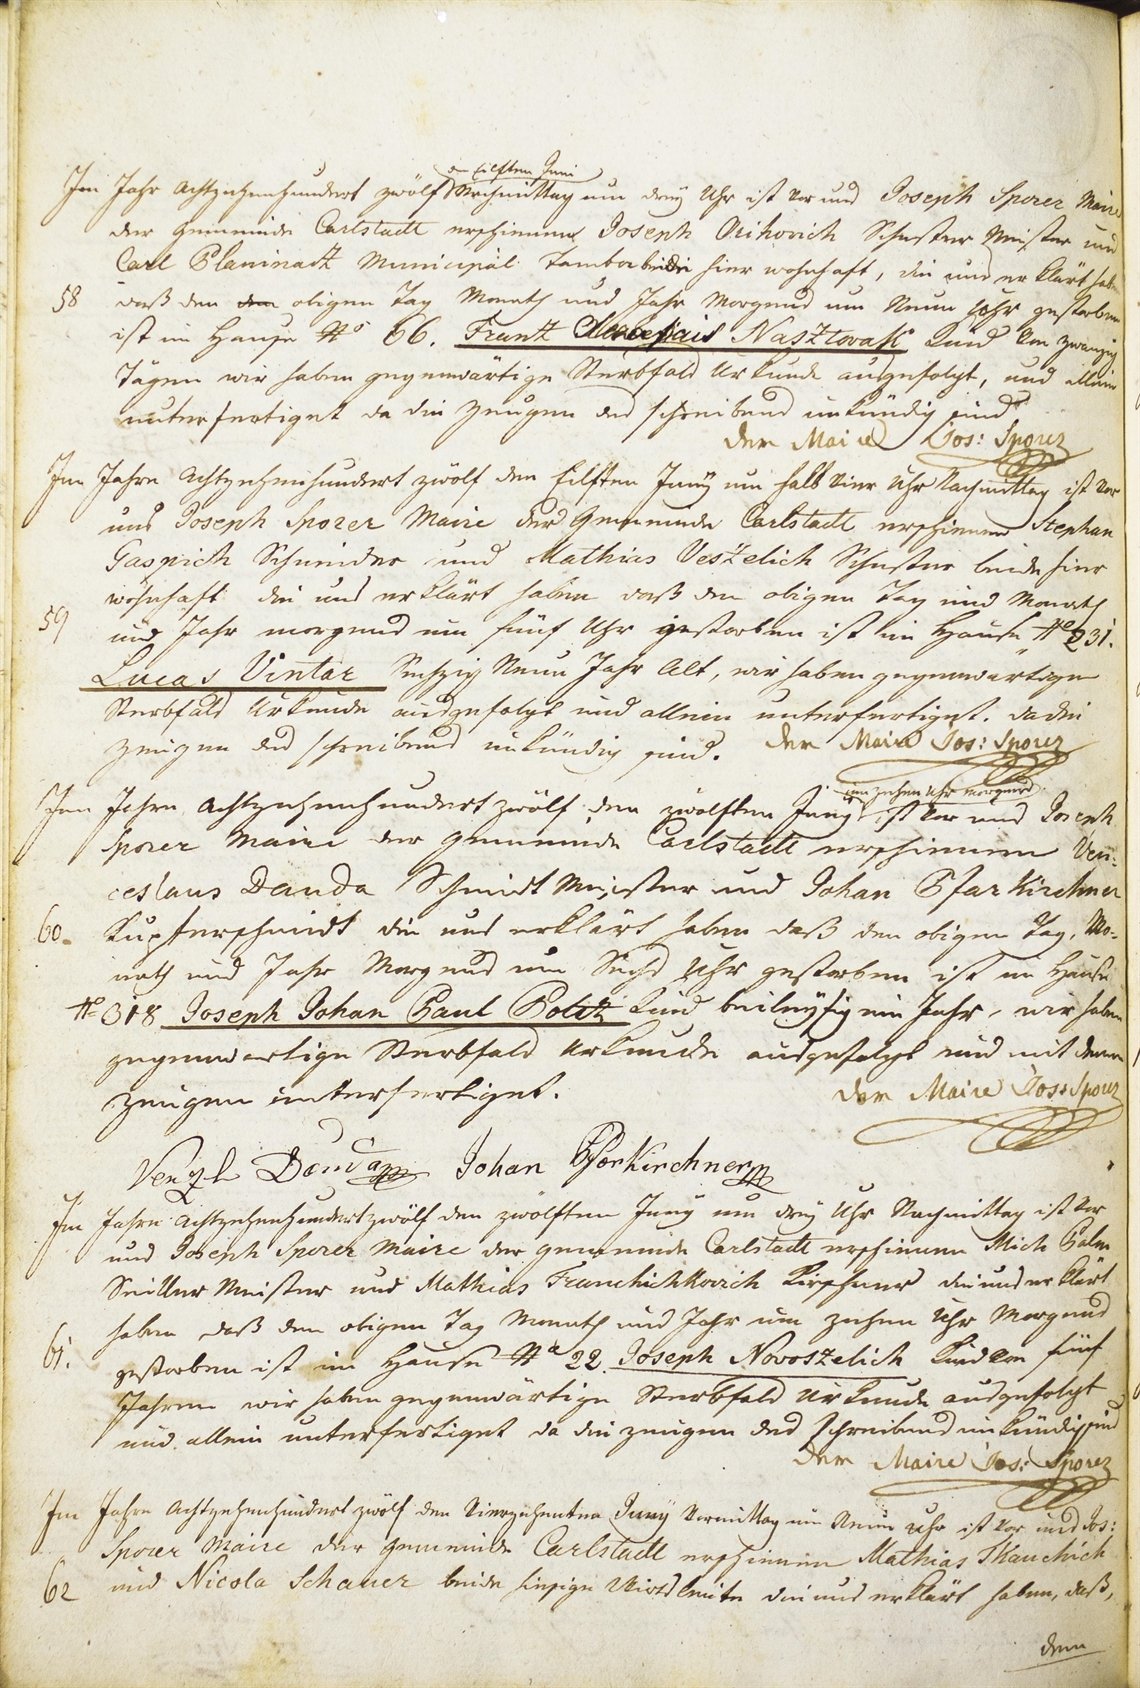 den Eilften Juni
Im Jahr Achtzehenhundert zwölf Nachmittag um dreÿ Uhr ist vor uns Joseph Sporer Maire
der Gemeinde Carlstadt erschienen Joseph Mihovich Schuster Meister und
Carl Planinack Municipal Tambor beide hier wohnhaft, die uns erklärt haben
58 daß den obigen Tag Monath und Jahr Morgens um Neun Uhr gestorben
ist im Hause No 66. Frantz Nasztovak Kind von zwanzig
Tägen wir haben gegenwärtige Sterbfalls Urkunde ausgefolgt, und allein
unterfertiget da die Zeugen des schreibens unkündig sind
der Maire Jos: Sporer
Im Jahre Achtzehenhundert zwölf den Eilften Junÿ um halb vier Uhr Nachmittag ist vor
uns Joseph Sporer Maire der Gemeinde Carlstadt erschienen Stephan
Gasprich Schneider und Mathias Veszelich Schuster beide hier
wohnhaft die uns erklärt haben daß den obigen Tag und Monath
59 und Jahr morgens um fünf Uhr gestorben ist im Hause No 231.
Lucas Vintar Sechzig Neun Jahr Alt, wir haben gegenwärtige
Sterbfalls Urkunde ausgefolgt und allein unterfertiget. da die
Zeugen des schreibens unkündig sind. der Maire Jos: Sporer
um zehen Uhr morgens
Im Jahre Achtzehenhundert zwölf den zwölften Junÿ ist vor uns Joseph
Sporer Maire der Gemeinde Carlstadt erschienen Ven=
ceslaus Dauda Schmidt Meister und Johan Pfarkirchner
60. Kupferschmidt die uns erklärt haben daß den obigen Tag, Mo=
nath und Jahr Morgens um Sechs Uhr gestorben ist im Hause
No 318 Joseph Johan Paul Politz Kind beileüfig ein Jahr, wir haben
gegenwärtige Sterbfalls Urkunde ausgefolgt und mit denen
Zeugen unterfertiget. der Maire Jos: Sporer
Venzl Dauda Johan Pfarkirchner
Im Jahre Achtzehenhundert zwölf den zwölften Junÿ um dreÿ Uhr Nachmittag ist vor
uns Joseph Sporer Maire der Gemeinde Carlstadt erschienen Mich Palm
Seiller Meister und Mathias Franchichkovich Kirschner die uns erklärt
haben daß den obigen Tag Monath und Jahr um zehen Uhr Morgens
61. gestorben ist im Hause No 22 Joseph Novoszelich Kind von fünf
Jahren wir haben gegenwärtige Sterbfalls Urkunde ausgefolgt
und allein unterfertiget da die Zeugen des schreibens unkündig sind
der Maire Jos: Sporer
Im Jahre Achtzehenhundert zwölf den Vierzehenten Junÿ Vormittag um Neun Uhr ist vor uns Jos:
Sporer Maire der Gemeinde Carlstadt erschienen Mathias Tkauchich
62 und Nicola Schauer beide hiesige Wirtsleute die uns erklärt haben, daß,
den